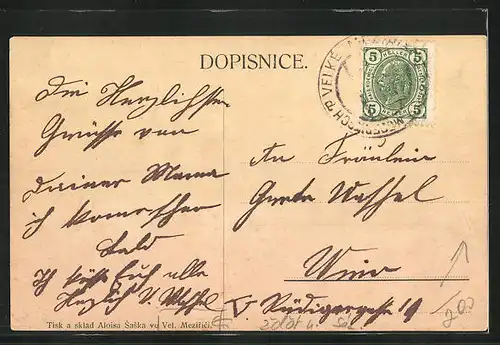 DOPISNICE.
VELKÉ
5 HELLER 5
5 5
Die Herzlichsten
Grüsse von
Deiner Mama
ich komme schon
bald
Ich küsse Euch alle
Herzlich
An Fräulein
Grete
Wien
V. Rüdigergasse 19
Tisk a sklad Aloisa Šaška ve Vel. Meziříčí.
200